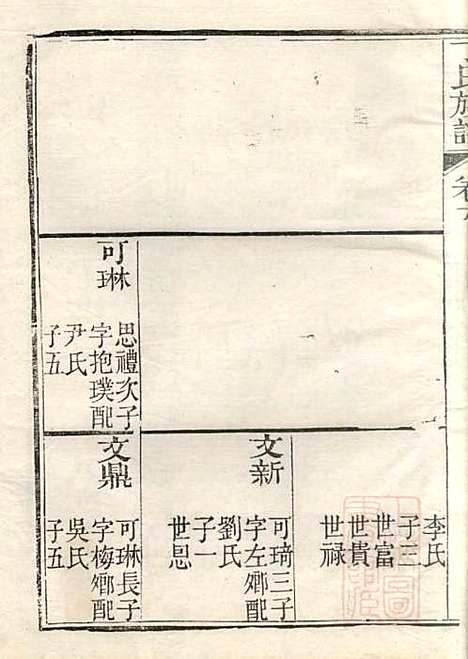 氏族譜
卷
可琳
思禮次子
字抱璞配
尹氏
子五
李氏
子三
世富
世貴
世祿
文新
可琦三子
字左鄉配
劉氏
子一
世恩
文鼎
可琳長子
字梅鄉配
吳氏
子五